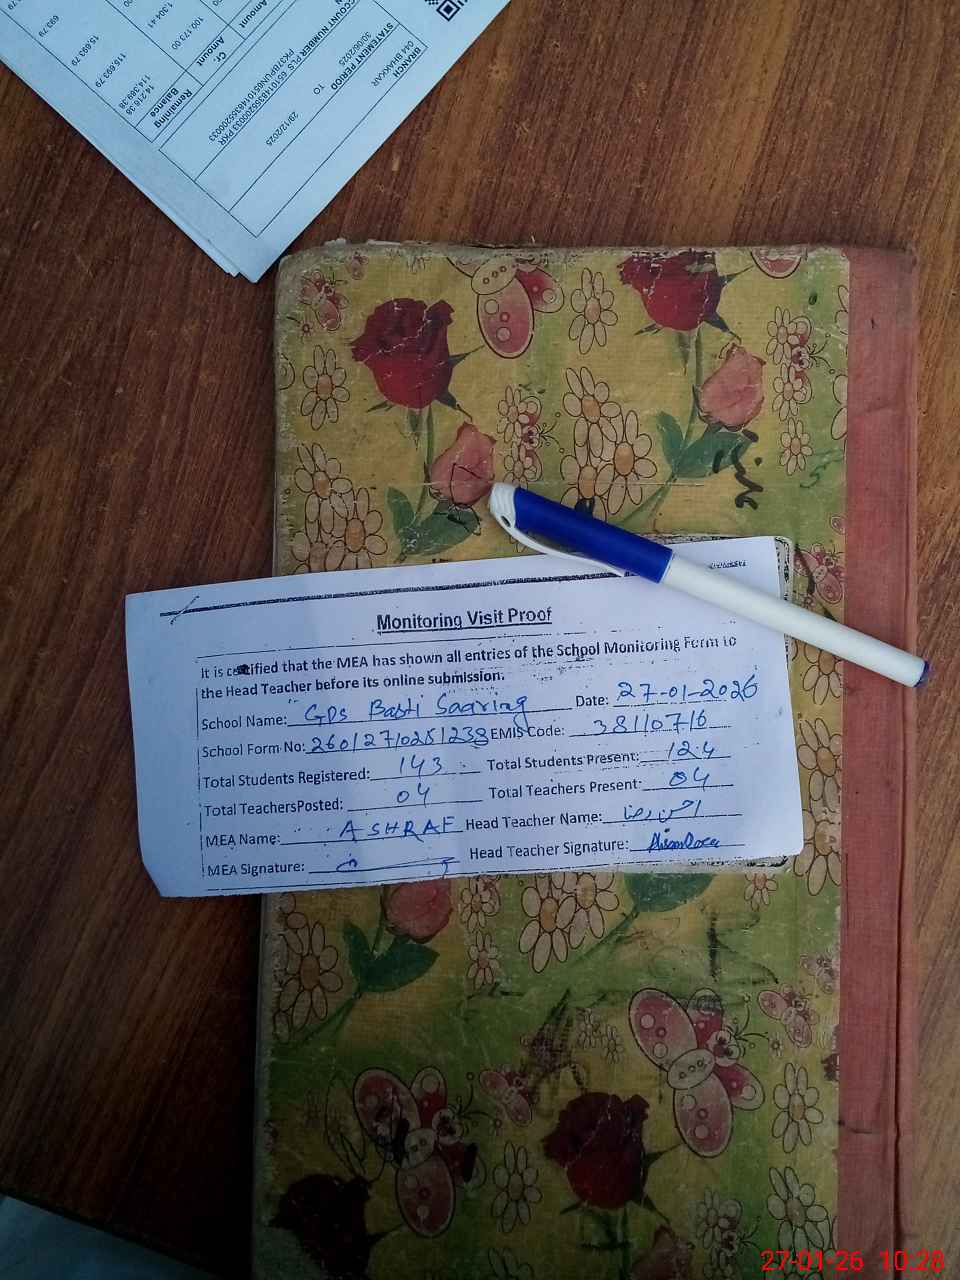 BRANCH
044 BHAKKAR
STATEMENT PERIOD
30/06/2025 TO 29/12/2025
COUNT NUMBER
PLS
PKR
Amount
Cr. Amount
Remaining Balance
100,173.00
1,304.41
14,216.38
114,389.38
115,693.79
15,693.79
693.79
Monitoring Visit Proof
It is certified that the MEA has shown all entries of the School Monitoring Form to
the Head Teacher before its online submission.
School Name: GPS Basti Date: 27-01-2026
School Form No: 26012710281238 EMIS Code: 38110716
Total Students Registered: 143 Total Students Present: 124
Total TeachersPosted: 04 Total Teachers Present: 04
MEA Name: ASHRAF Head Teacher Name: احسن رضا
MEA Signature: Head Teacher Signature:
27-01-26 10:28